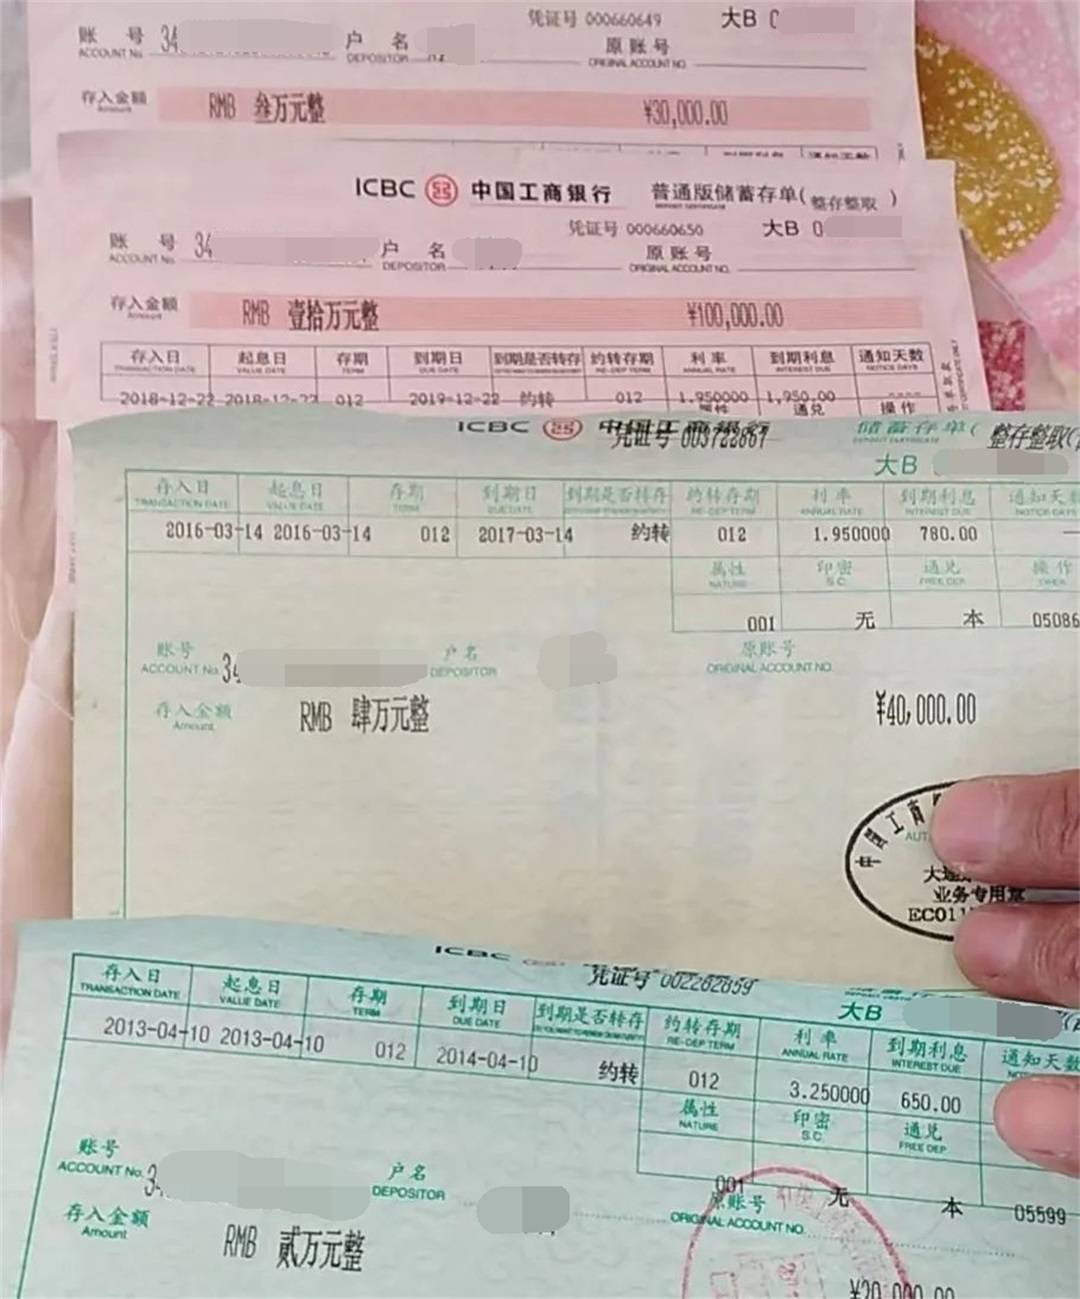 凭证号 000660649 大B 0
账 号 34 户 名 原账号
ACCOUNT No. DEPOSITOR ORIGINAL ACCOUNT NO.
存入金额 RMB 叁万元整 ¥30,000.00
Amount
ICBC 中国工商银行 普通版储蓄存单( 整存整取 )
凭证号 000660650 大B 0
账 号 34 户 名 原账号
ACCOUNT No. DEPOSITOR ORIGINAL ACCOUNT NO.
存入金额 RMB 壹拾万元整 ¥100,000.00
Amount
存入日 起息日 存期 到期日 到期是否转存 约转存期 利率 到期利息 通知天数
TRANSACTION DATE VALUE DATE TERM DUE DATE RE-DEP TERM ANNUAL RATE INTEREST DUE NOTICE DAYS
2018-12-22 2018-12-22 012 2019-12-22 约转 012 1.950000 1,950.00
属性 通兑 操作
ICBC 中国工商银行 储蓄存单( 整存整取(
凭证号 003722867
大B
存入日 起息日 存期 到期日 到期是否转存 约转存期 利率 到期利息 通知天数
TRANSACTION DATE VALUE DATE TERM DUE DATE RE-DEP TERM ANNUAL RATE INTEREST DUE NOTICE DAYS
2016-03-14 2016-03-14 012 2017-03-14 约转 012 1.950000 780.00
属性 印密 通兑 操作
NATURE S.C. FREE DEP
001 无 本 05086
账号 户名 原账号
ACCOUNT No. 34 DEPOSITOR ORIGINAL ACCOUNT NO.
存入金额 RMB 肆万元整 ¥40,000.00
Amount
中国工商
大连
业务专用章
EC011
ICBC 凭证号 002282859
大B
存入日 起息日 存期 到期日 到期是否转存 约转存期 利率 到期利息 通知天数
TRANSACTION DATE VALUE DATE TERM DUE DATE RE-DEP TERM ANNUAL RATE INTEREST DUE
2013-04-10 2013-04-10 012 2014-04-10 约转 012 3.250000 650.00
属性 印密 通兑
NATURE S.C. FREE DEP
001 无 本 05599
账号 户名 原账号
ACCOUNT No. 34 DEPOSITOR ORIGINAL ACCOUNT NO.
存入金额 RMB 贰万元整 ¥20,000.00
Amount